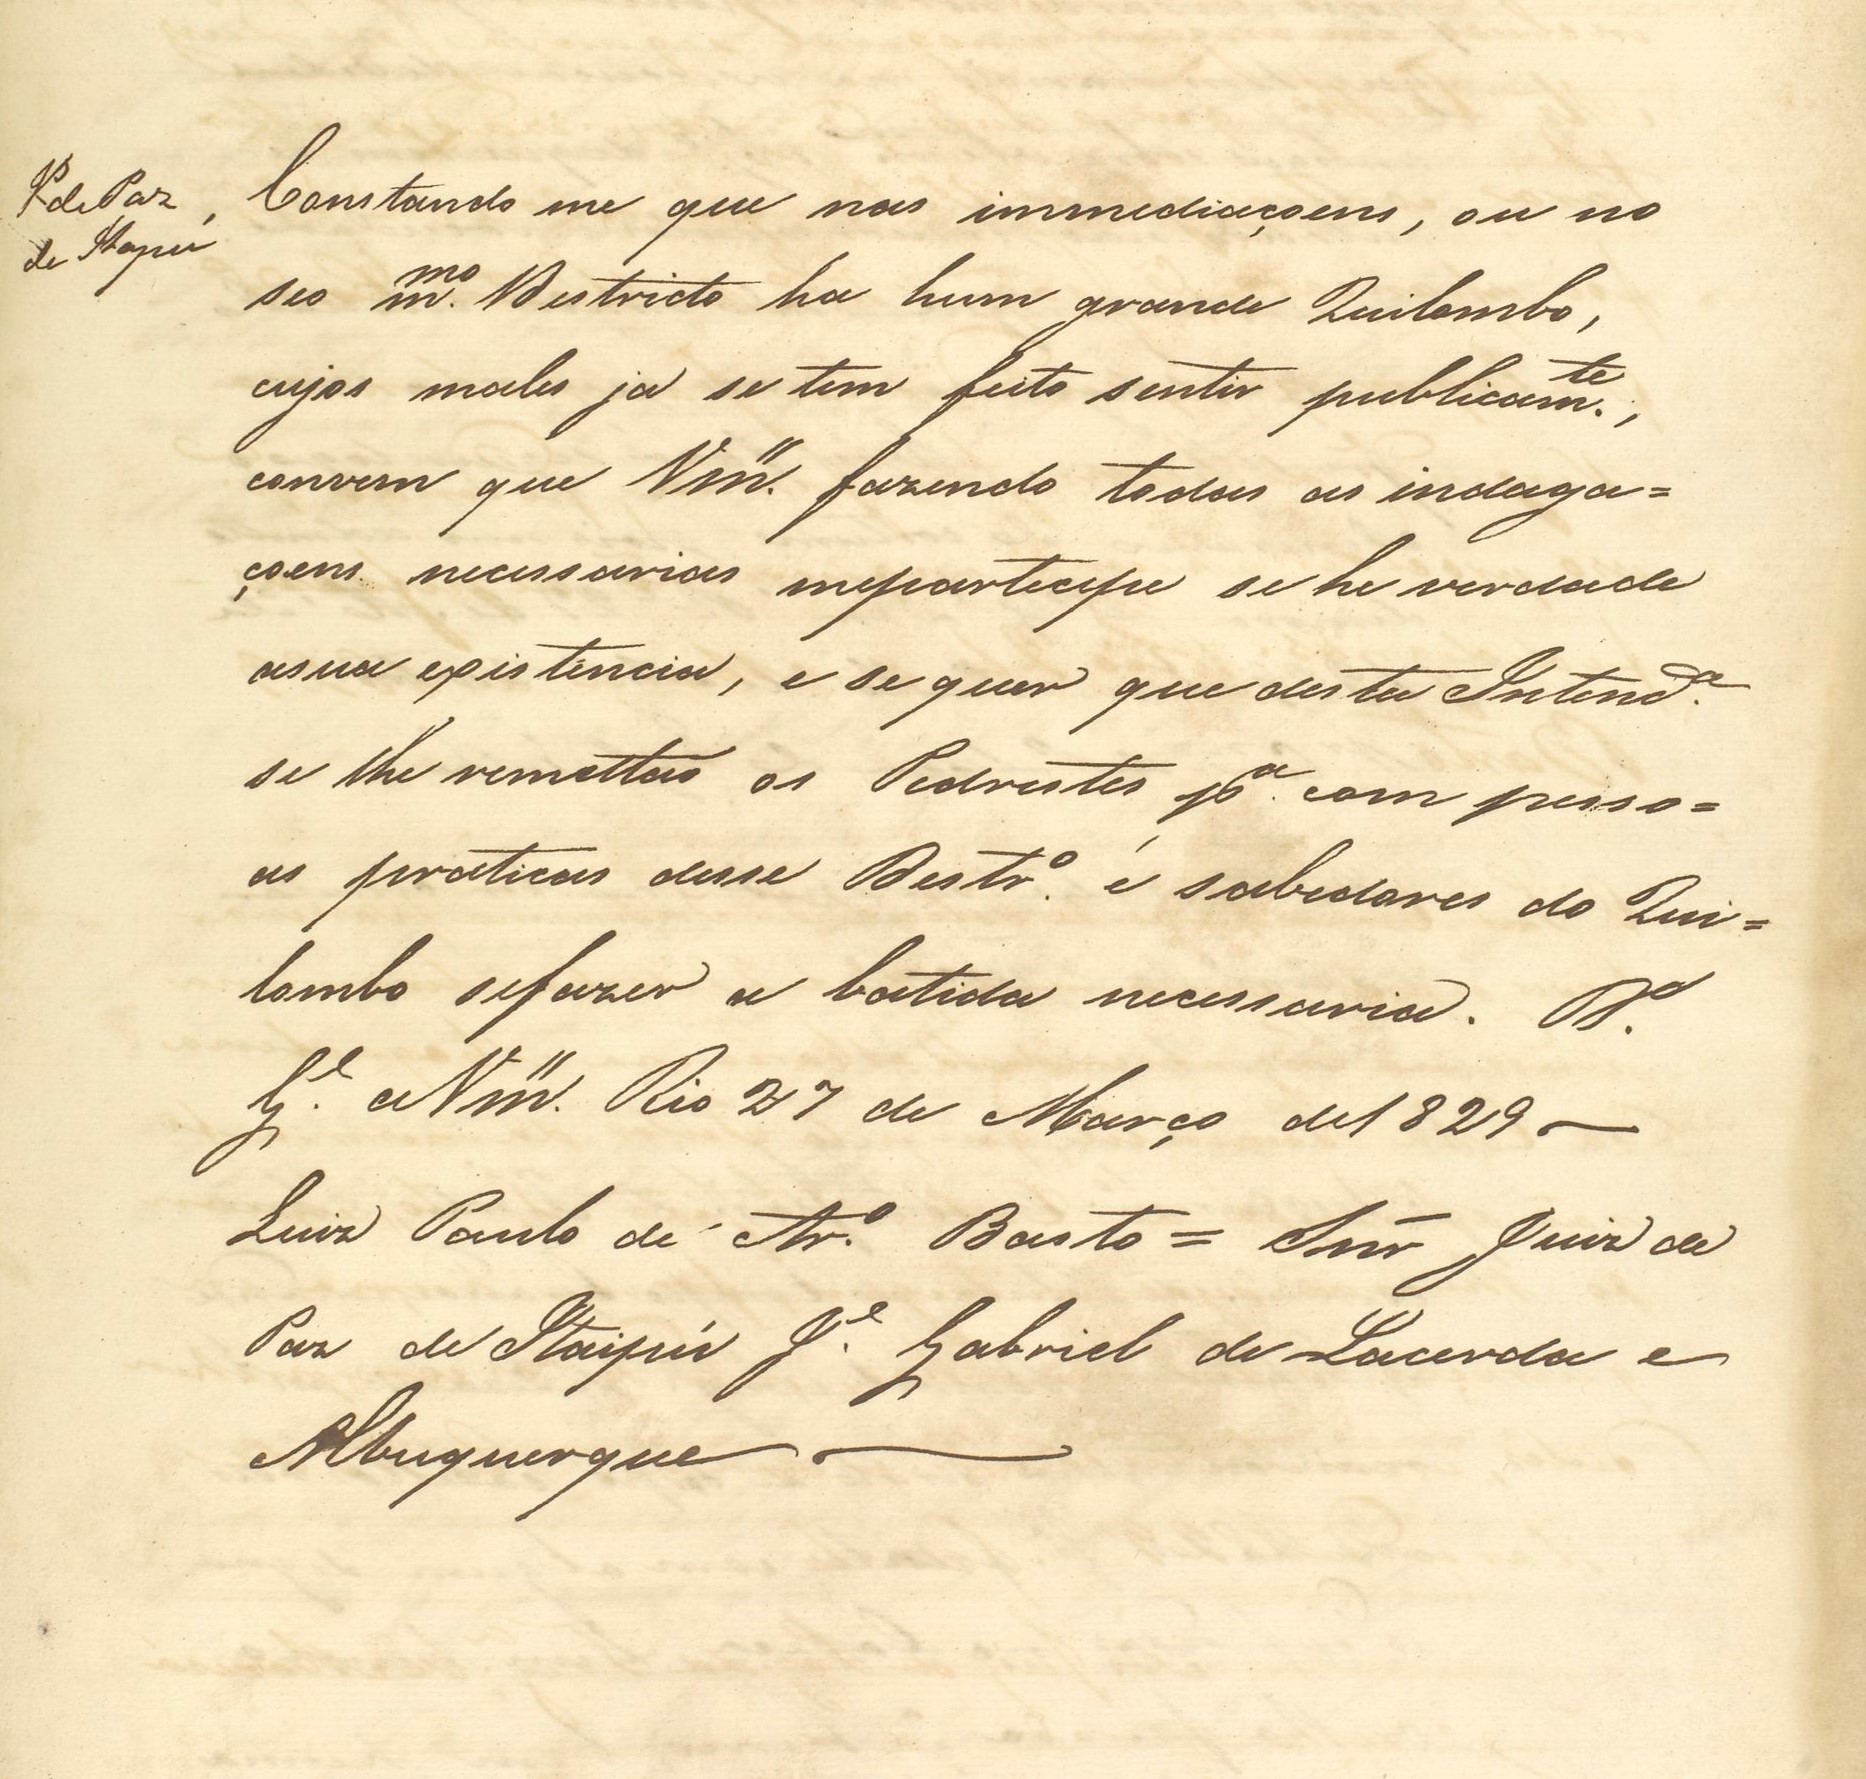 J.P. de Paz
de Itapú
Constando me que nas immediaçoens, ou no
seo m.mo Destricto ha hum grande Quilombo,
cujos males ja se tem feito sentir publicam.te,
convem que Vm.ce fazendo todas as indaga=
çoens necessarias meparticipe se he verdade
asua existencia, e se quer que desta Intend.a
se lhe remettão os Pedrestes p.a com pesso=
as praticas desse Destr.o é sabedores do Qui=
lombo sefazer a batida necessaria. D.s
G.e a Vm.ce Rio 27 de Março de 1829 —
Luiz Paulo de Ar.o Basto = Snr Juiz de
Paz de Itaipú J.e Gabriel de Lacerda e
Albuquerque —